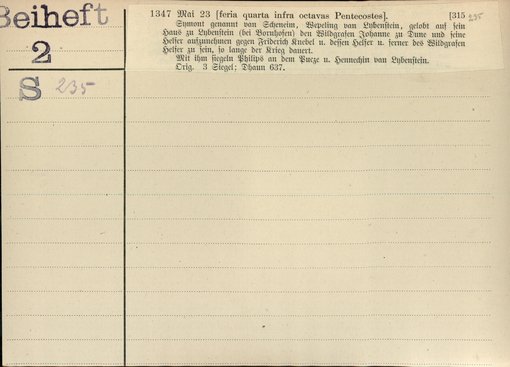 Beiheft
2
S 235
1347 Mai 23 [feria quarta infra octavas Pentecostes]. [315 235
Symont genannt van Scheneim, Wepeling van Lybenstein, gelobt auf sein
Haus zu Lybenstein (bei Bornhofen) den Wildgrafen Johanne zu Dune und seine
Helfer aufzunehmen gegen Friderich Knebel u. dessen Helfer u. ferner des Wildgrafen
Helfer zu sein, so lange der Krieg dauert.
Mit ihm siegeln Philips an dem Pucze u. Hennechin van Lybenstein.
Orig. 3 Siegel; Dhaun 637.